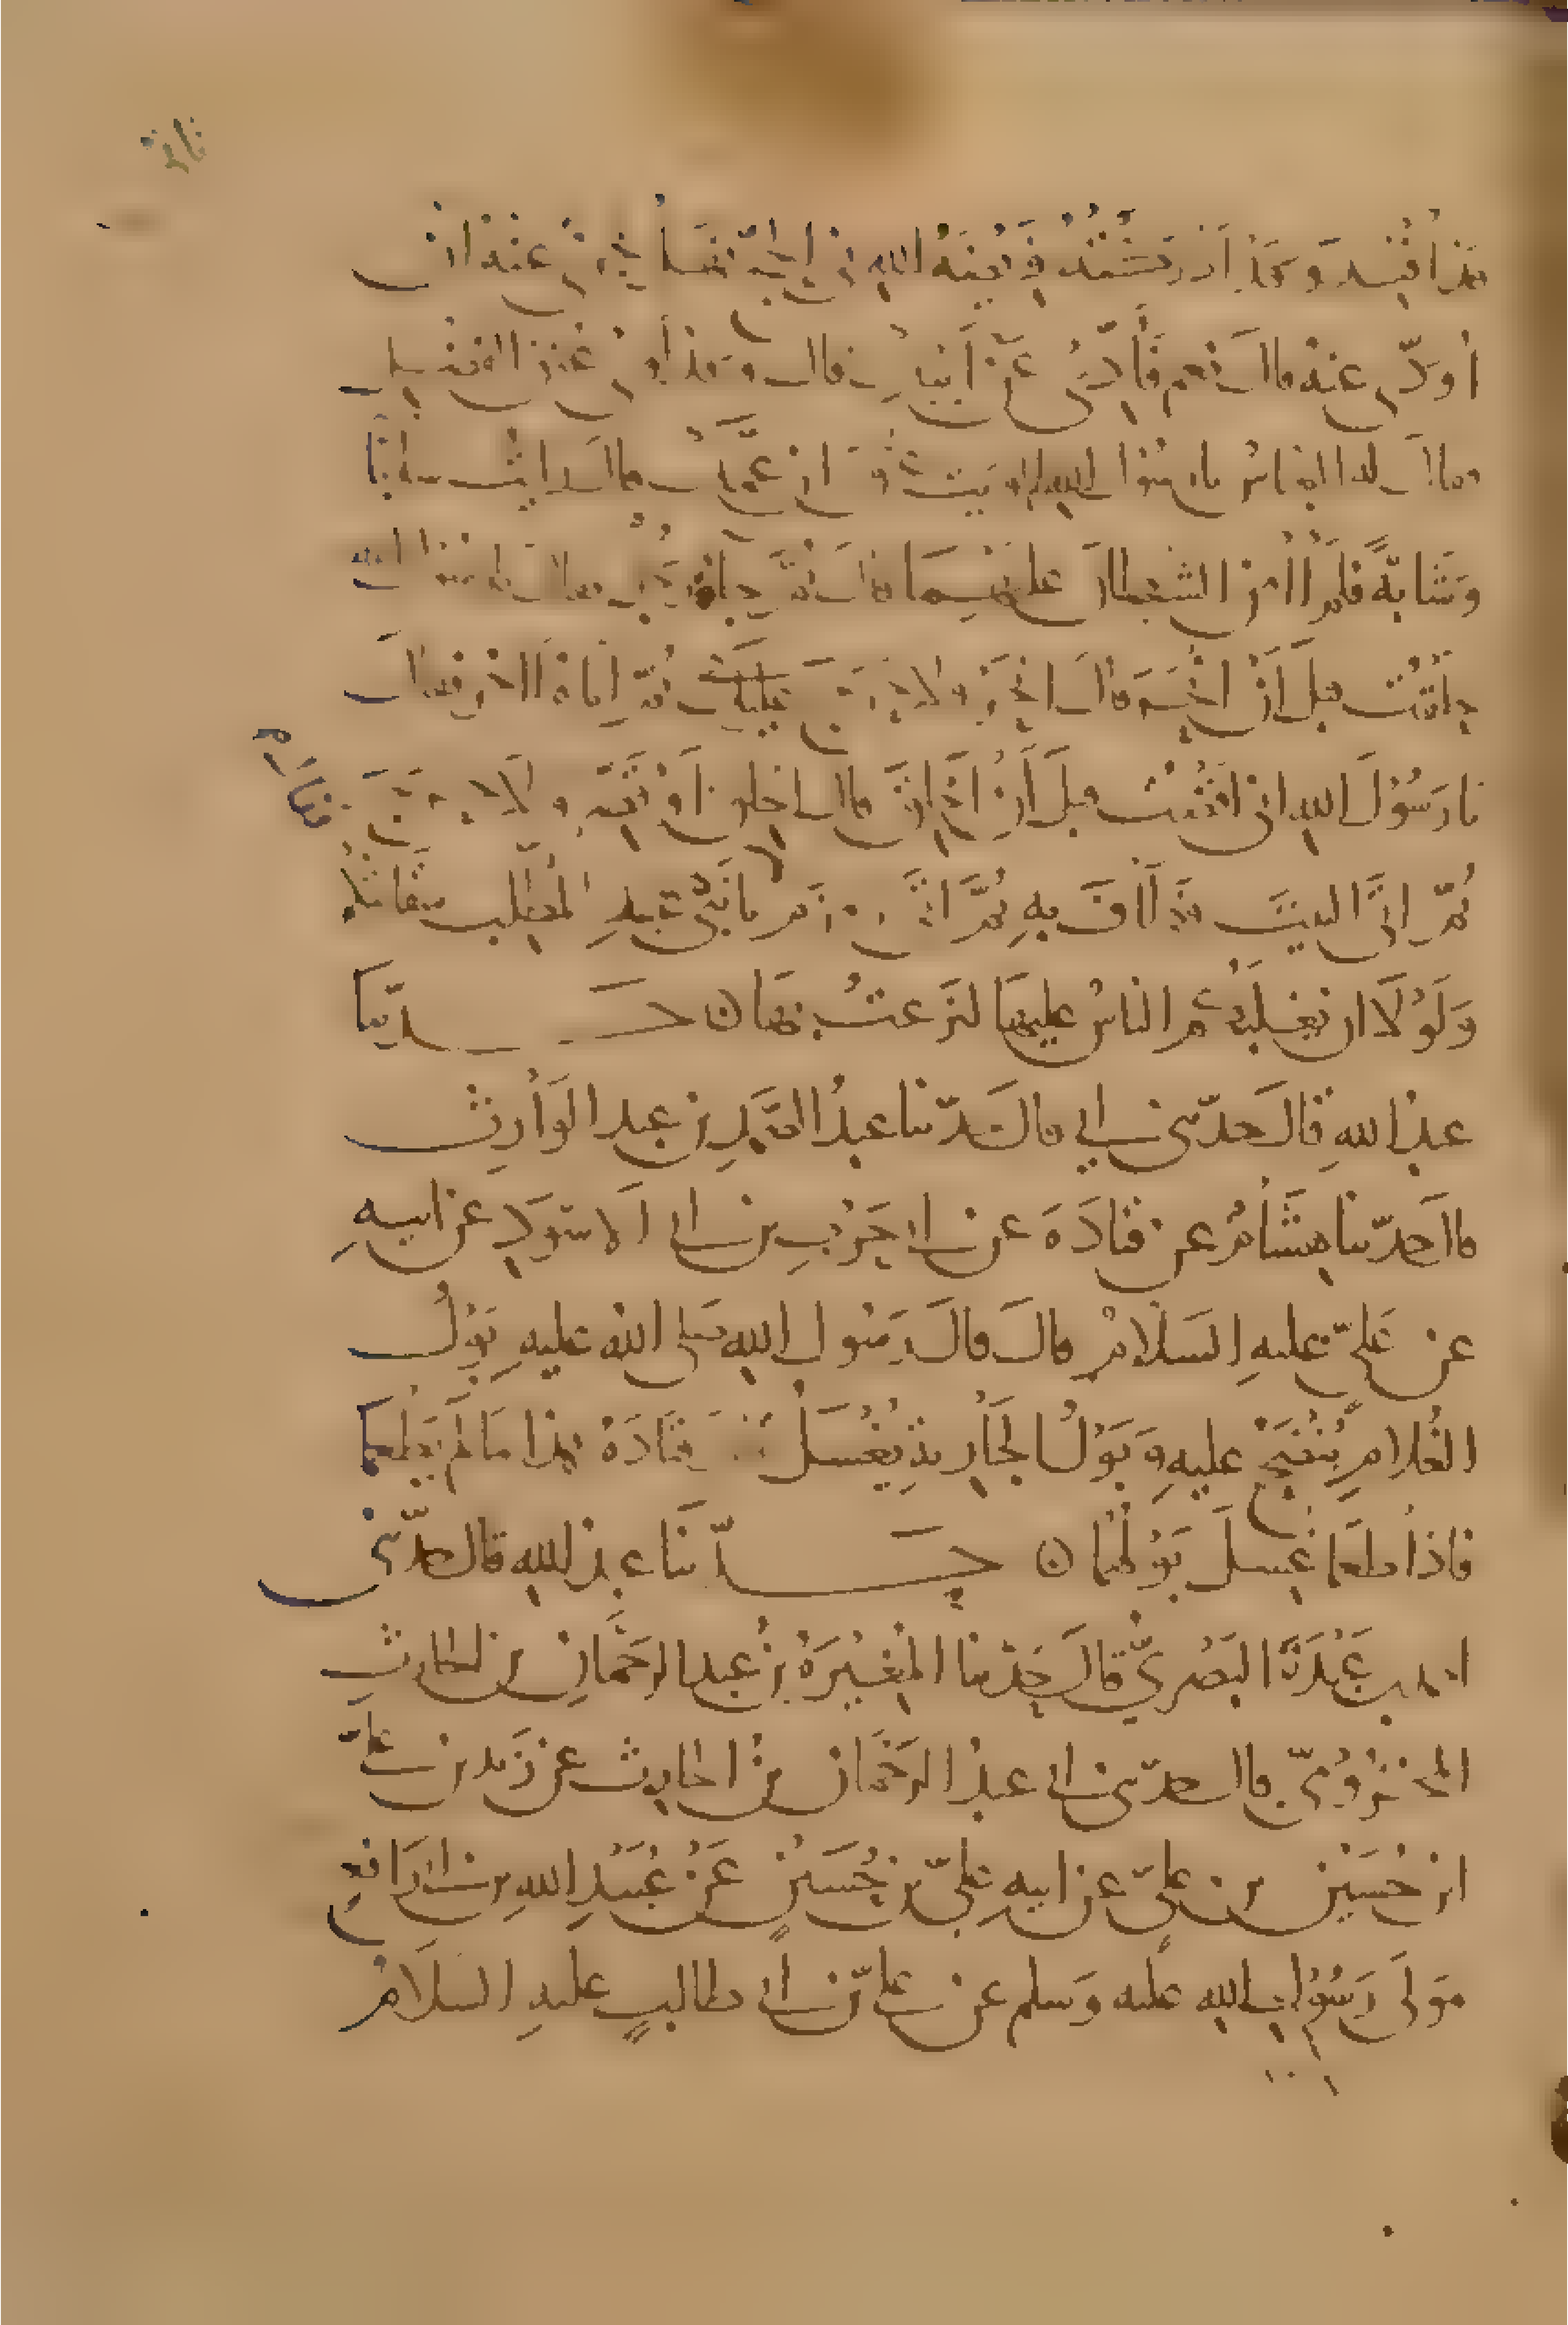 قد أفند وقد أدركته فريضة الله في الحج فهل يجزئ عنه أن
أودي عنه قال نعم فأدي عن أبيك قال وقد لوى عنق الفضل
فقال له العباس يا رسول الله لم لويت عنق ابن عمك قال رأيت شابا
وشابة فلم آمن الشيطان عليهما قال ثم جاءه رجل فقال يا رسول الله
حلقت قبل أن أنحر قال انحر ولا حرج عليك ثم أتاه آخر فقال
يا رسول الله إني أفضت قبل أن أحلق قال احلق أو قصر ولا حرج
ثم أتى البيت فطاف به ثم أتى زمزم فقال يا بني عبد المطلب سقايتكم
ولولا ان تغلبكم الناس عليها لنزعت بها ن حدثنا
عبد الله قال حدثني أبي قال حدثنا عبد الصمد بن عبد الوارث
قال حدثنا هشام عن قتادة عن أبي حرب بن أبي الاسود عن ابيه
عن علي عليه السلام قال قال رسول الله صلى الله عليه بول
الغلام ينضح عليه وبول الجارية يغسل قال قتادة هذا ما لم يطعما
فاذا طعما غسل بولهما ن حدثنا عبد الله قال حدثني
احمد بن عبدة البصري قال حدثنا المغيرة بن عبد الرحمان بن الحارث
المخزومي قال حدثني أبي عبد الرحمان بن الحارث عن زيد بن علي
ابن حسين بن علي عن ابيه علي بن حسين عن عبيد الله بن أبي رافع
مولى رسول الله عليه وسلم عن علي بن أبي طالب عليه السلام